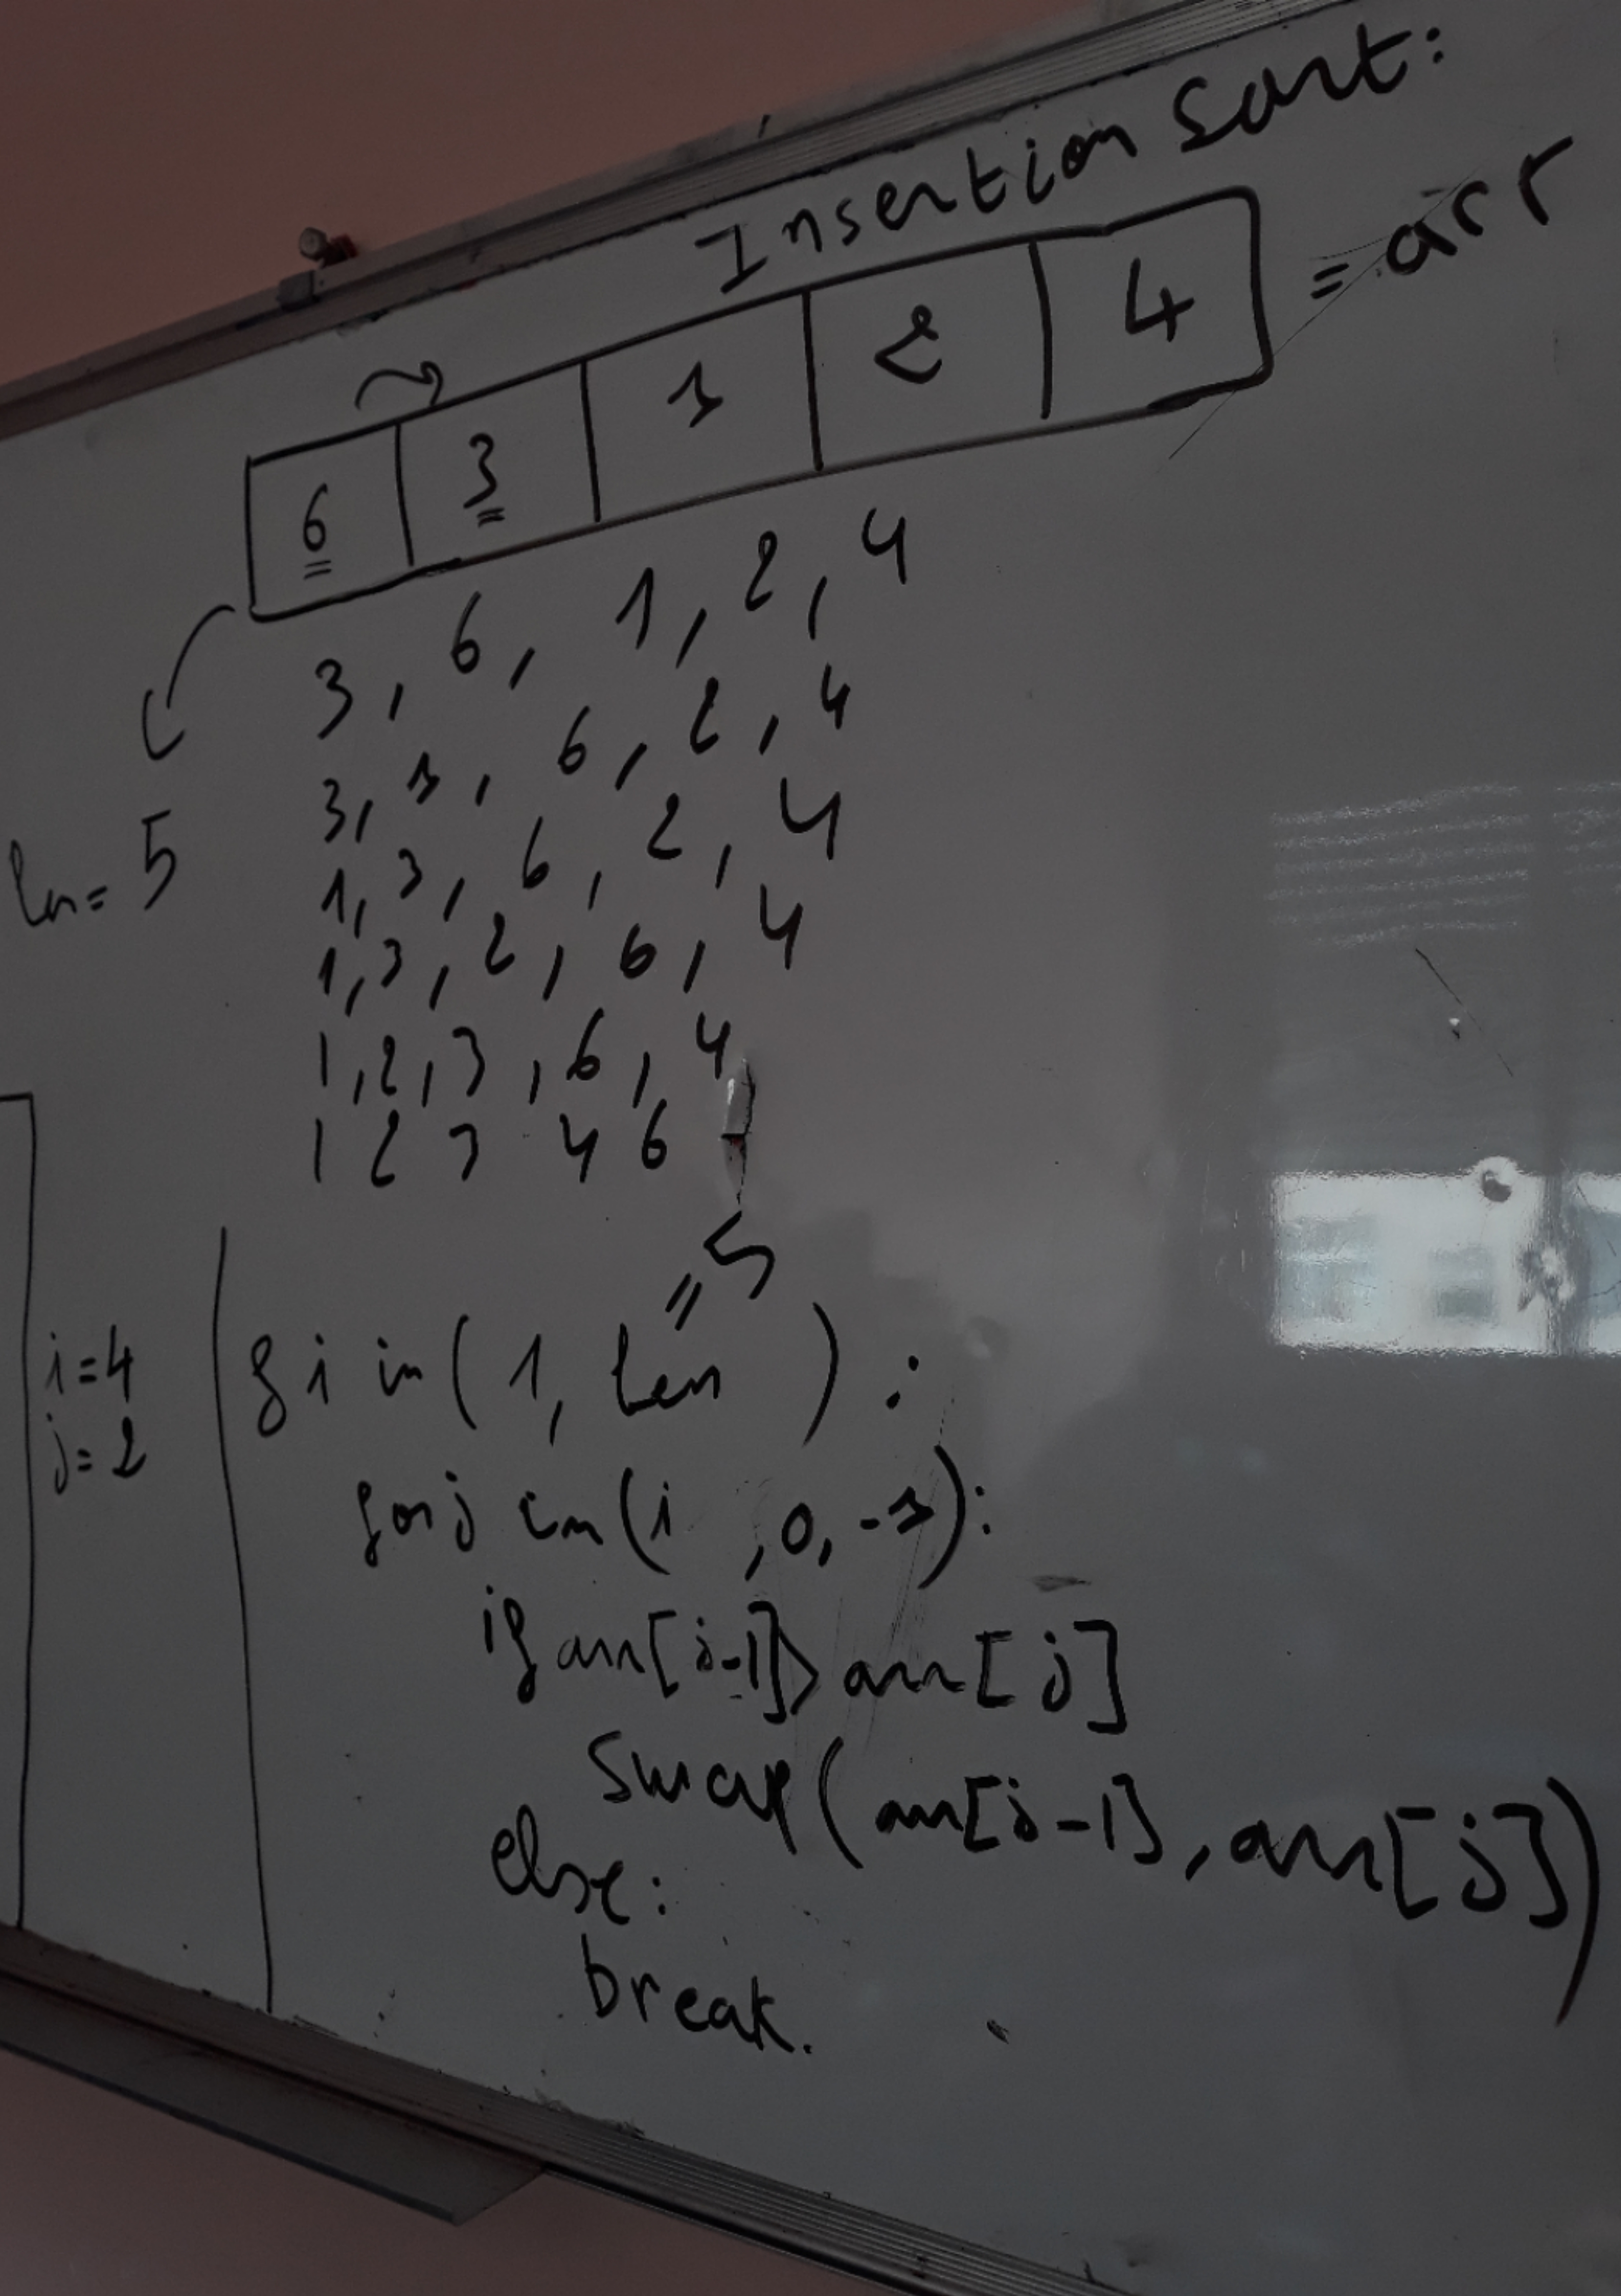 Insertion Sort:
6 3 1 2 4 = arr
3, 6, 1, 2, 4
3, 1, 6, 2, 4
len = 5
1, 3, 6, 2, 4
1, 3, 2, 6, 4
1, 2, 3, 6, 4
1 2 3 4 6
= 5
i=4
j=2
f i in (1, len ) :
for j in (i , 0, -1):
if arr[j-1] > arr[j]
Swap(arr[j-1], arr[j])
else:
break.